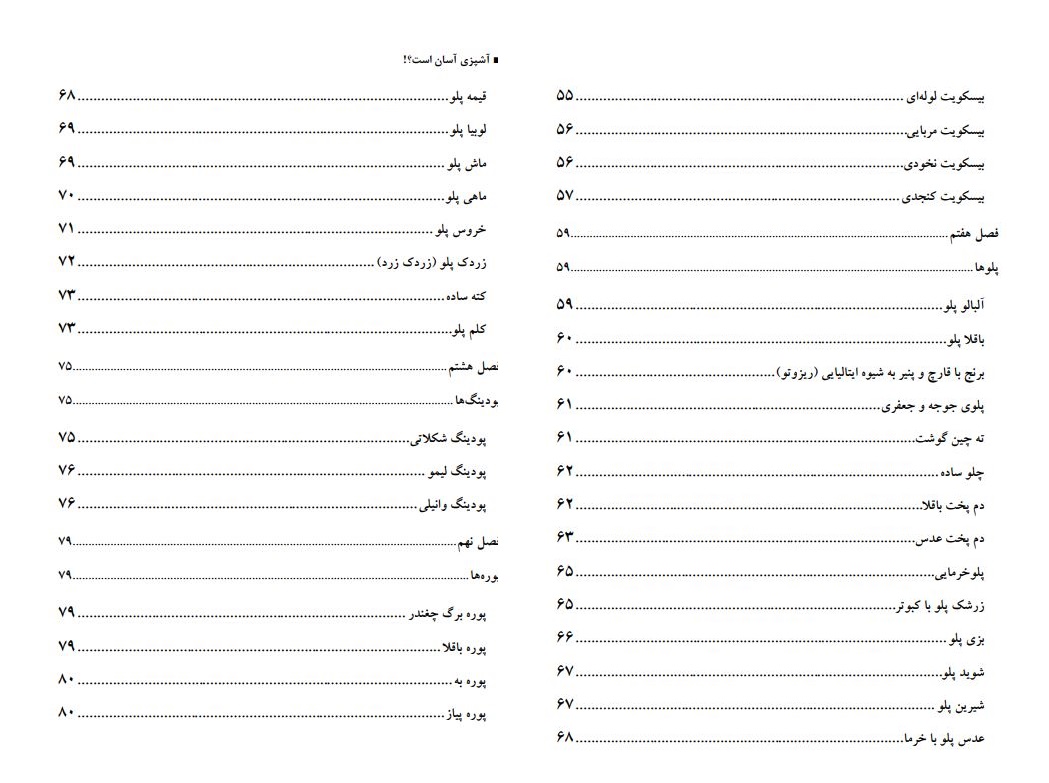 بیسکویت لوله‌ای ........ ۵۵
بیسکویت مربایی ........ ۵۶
بیسکویت نخودی ........ ۵۶
بیسکویت کنجدی ........ ۵۷
فصل هفتم ........ ۵۹
پلوها ........ ۵۹
آلبالو پلو ........ ۵۹
باقلا پلو ........ ۶۰
برنج با قارچ و پنیر به شیوه ایتالیایی (ریزوتو) ........ ۶۰
پلوی جوجه و جعفری ........ ۶۱
ته چین گوشت ........ ۶۱
چلو ساده ........ ۶۲
دم پخت باقلا ........ ۶۲
دم پخت عدس ........ ۶۳
پلوخرمایی ........ ۶۵
زرشک پلو با کبوتر ........ ۶۵
بزی پلو ........ ۶۶
شوید پلو ........ ۶۷
شیرین پلو ........ ۶۷
عدس پلو با خرما ........ ۶۸
■ آشپزی آسان است؟!
قیمه پلو ........ ۶۸
لوبیا پلو ........ ۶۹
ماش پلو ........ ۶۹
ماهی پلو ........ ۷۰
خروس پلو ........ ۷۱
زردک پلو (زردک زرد) ........ ۷۲
کته ساده ........ ۷۳
کلم پلو ........ ۷۳
فصل هشتم ........ ۷۵
پودینگ‌ها ........ ۷۵
پودینگ شکلاتی ........ ۷۵
پودینگ لیمو ........ ۷۶
پودینگ وانیلی ........ ۷۶
فصل نهم ........ ۷۹
پوره‌ها ........ ۷۹
پوره برگ چغندر ........ ۷۹
پوره باقلا ........ ۷۹
پوره به ........ ۸۰
پوره پیاز ........ ۸۰